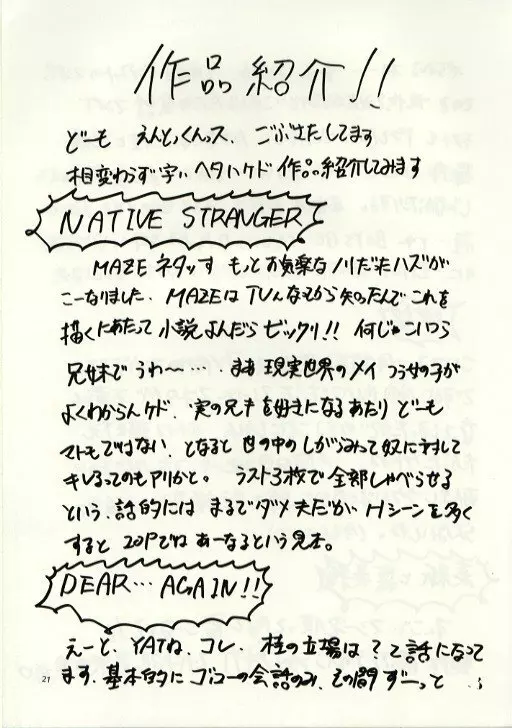 作品紹介!!
どーも えんどくんス、ごぶさたしてます
相変わらず字ぃヘタいケド 作品紹介してみます
NATIVE STRANGER
MAZEネタッす もっとお気楽なノリだったハズが
こーなりました、MAZEはTVんなでから知ったんで これを
描くにあたって 小説よんだら ビックリ!! 何じゃこいつら
兄妹で うわ〜…. まあ 現実世界のメイ つう女の子が
よくわからんケド、実の兄キを好きになるあたり どーも
マトモではない、となると 世の中のしがらみって奴に対して
キレるってのもアリかと。 ラスト3枚で全部しゃべらせる
という、話的には まるでダメ夫だが、Hシーンを多く
すると 20Pでは あーなるという見本。
DEAR… AGAIN!!
えーと、YATね、コレ、 桂の立場は?と話になって
ます、基本的に ゴローの会話のみ、その間 ずーっと
21